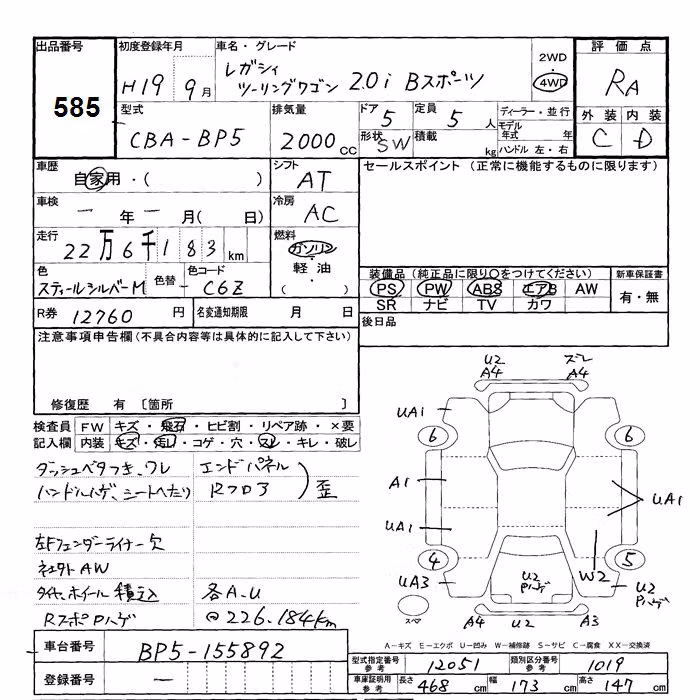 出品番号 初度登録年月 車名・グレード 2WD 評価点
585 H19 9月 レガシィ ツーリングワゴン 2.0i Bスポーツ 4WD RA
型式 排気量 ドア 5 定員 5人 ディーラー・並行 外装 内装
CBA-BP5 2000cc 形状 SW 積載 kg モデル年式 年 ハンドル 左・右 C D
車歴 シフト セールスポイント (正常に機能するものに限ります)
自家用・( ) AT
車検 冷房
ー年ー月( 日) AC
走行 燃料
22万6千183km ガソリン・軽油・( )
色 色替 色コード 装備品 (純正品に限り○をつけてください) 新車保証書
スティールシルバーM - C6Z PS PW ABS エアB AW 有・無
SR ナビ TV カワ
R券 12760円 名変通知期限 月 日 後日品
注意事項申告欄 (不具合内容等は具体的に記入して下さい)
修復歴 有 〔箇所 〕
検査員 FW キズ・飛石・ヒビ割・リペア跡・×要
記入欄 内装 キズ・汚レ・コゲ・穴・スレ・キレ・破レ
ダッシュベタつき、ワレ エンドパネル
ハンドルハゲ、シートへたり Rフロア ) 歪
左Fフェンダーライナー欠
社外AW
タイヤ、ホイール積込 各A.U
RスポPハゲ @226.184km
U2 ズレ
A4 A4
UA1
6 6
A1 UA1
UA1
4 5
UA3 W2 U2 Pハゲ
U2 Pハゲ
スペ A4 U2 A3
A-キズ E-エクボ U-凹み W-補修跡 S-サビ C-腐食 XX-交換済
車台番号 BP5-155892
登録番号 ー
型式指定番号 参考 12051 類別区分番号 参考 1019
車庫証明用 参考 長さ 468cm 幅 173cm 高さ 147cm